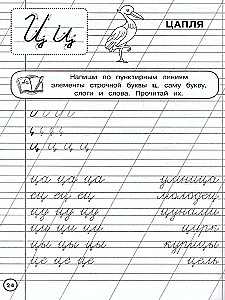 Ц ц
ЦАПЛЯ
Напиши по пунктирным линиям
элементы строчной буквы ц, саму букву,
слоги и слова. Прочитай их.
ц ц ц ц ц
ца ца ца умница
ец ец ец молодец
цу цу цу цунами
ци ци ци цирк
цы цы цы курицы
це це це цель
24